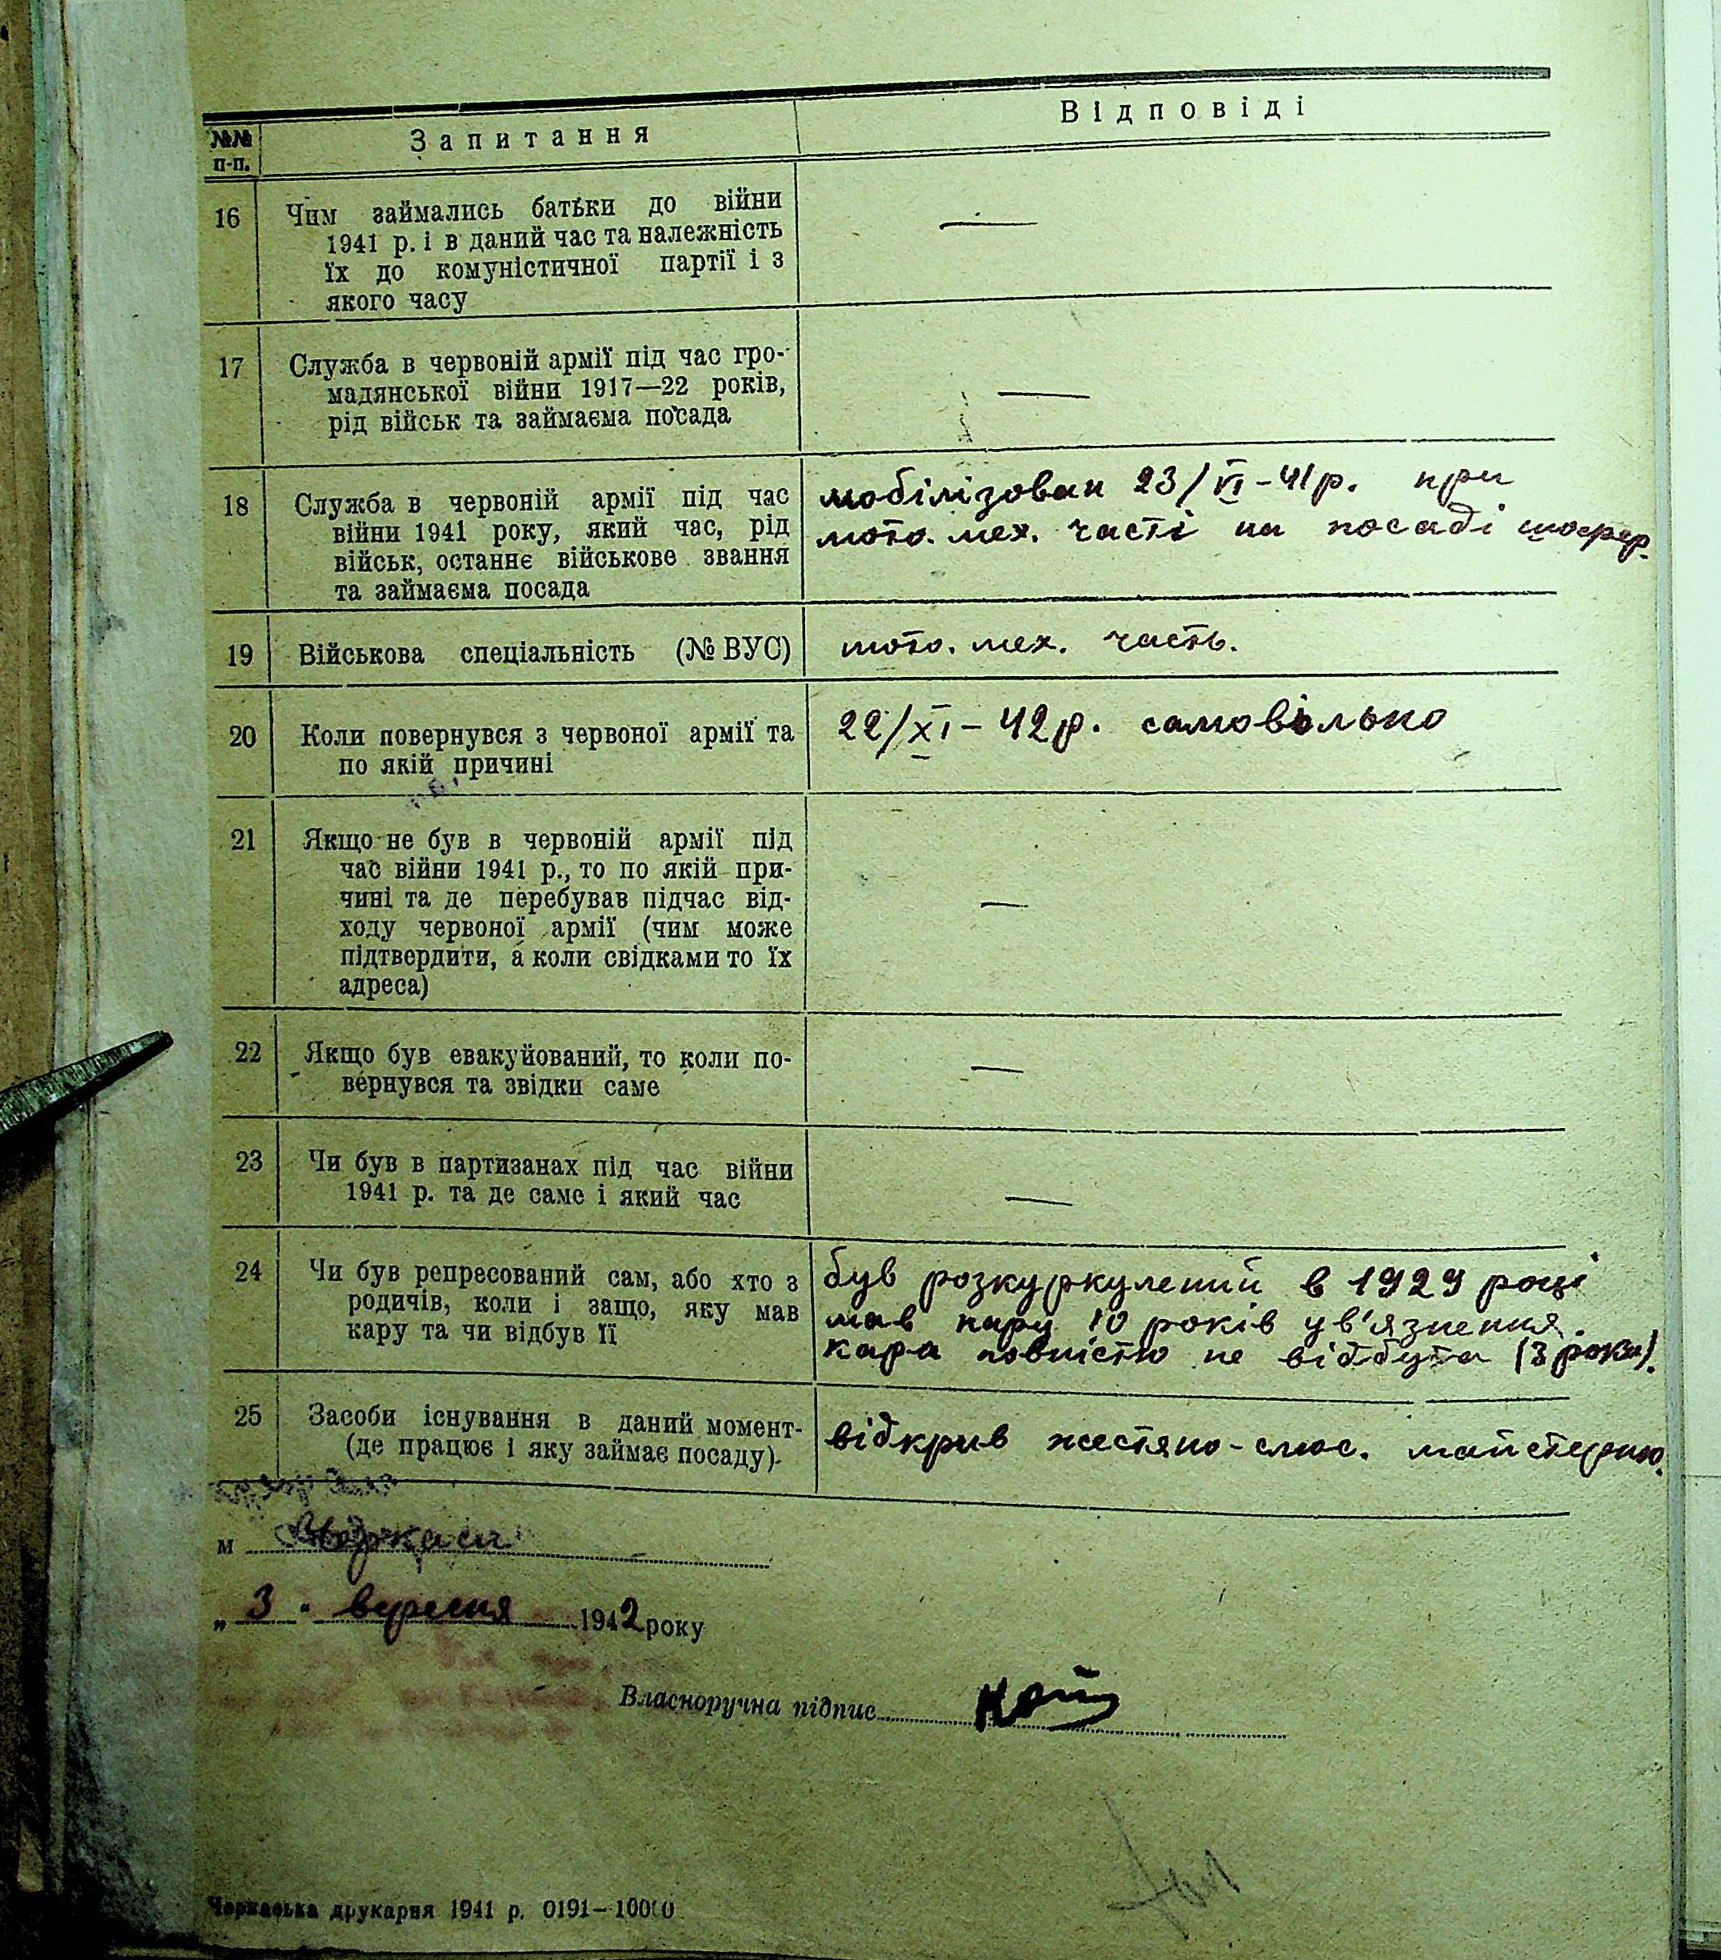 №№ п-п.
Запитання
Відповіді
16
Чим займались батьки до війни
1941 р. і в даний час та належність
їх до комуністичної партії і з
якого часу
—
17
Служба в червоній армії під час гро-
мадянської війни 1917—22 років,
рід військ та займаєма посада
—
18
Служба в червоній армії під час
війни 1941 року, який час, рід
військ, останнє військове звання
та займаєма посада
мобілізован 23/VI-41р. при
мото. мех. часті на посаді шофер.
19
Військова спеціальність (№ ВУС)
мото. мех. часть.
20
Коли повернувся з червоної армії та
по якій причині
22/XI-42р. самовільно
21
Якщо не був в червоній армії під
час війни 1941 р., то по якій при-
чині та де перебував підчас від-
ходу червоної армії (чим може
підтвердити, а коли свідками то їх
адреса)
—
22
Якщо був евакуйований, то коли по-
вернувся та звідки саме
—
23
Чи був в партизанах під час війни
1941 р. та де саме і який час
—
24
Чи був репресований сам, або хто з
родичів, коли і защо, яку мав
кару та чи відбув її
був розкуркулений в 1929 році
мав кару 10 років ув'язнення.
кара повністю не відбута (3 роки).
25
Засоби існування в даний момент-
(де працює і яку займає посаду).
відкрив жестяно-слюс. майстерню.
м Черкаси
„ 3 " вересня 1942 року
Власноручна підпис
Черкаська друкарня 1941 р. 0191—10000